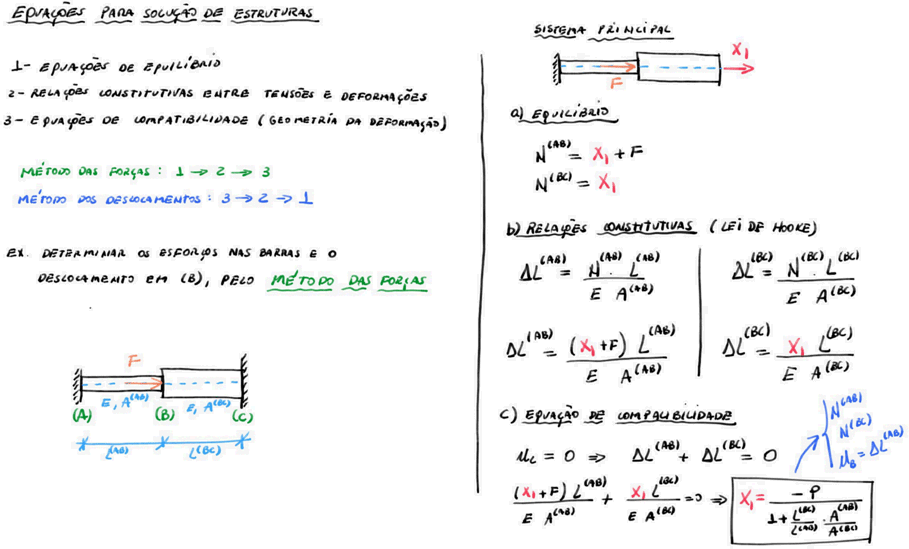 EQUAÇÕES PARA SOLUÇÃO DE ESTRUTURAS
1- EQUAÇÕES DE EQUILÍBRIO
2- RELAÇÕES CONSTITUTIVAS ENTRE TENSÕES E DEFORMAÇÕES
3- EQUAÇÕES DE COMPATIBILIDADE (GEOMETRIA DA DEFORMAÇÃO)
MÉTODO DAS FORÇAS: 1 → 2 → 3
MÉTODO DOS DESLOCAMENTOS: 3 → 2 → 1
EX. DETERMINAR OS ESFORÇOS NAS BARRAS E O
DESLOCAMENTO EM (B), PELO MÉTODO DAS FORÇAS
F
E, A^(AB) E, A^(BC)
(A) (B) (C)
L^(AB) L^(BC)
SISTEMA PRINCIPAL
X₁
F
a) EQUILÍBRIO
N^(AB) = X₁ + F
N^(BC) = X₁
b) RELAÇÕES CONSTITUTIVAS (LEI DE HOOKE)
ΔL^(AB) = N^(AB) . L^(AB) / E A^(AB)
ΔL^(BC) = N^(BC) . L^(BC) / E A^(BC)
ΔL^(AB) = (X₁+F) L^(AB) / E A^(AB)
ΔL^(BC) = X₁ L^(BC) / E A^(BC)
c) EQUAÇÃO DE COMPATIBILIDADE
u_C = 0 ⇒ ΔL^(AB) + ΔL^(BC) = 0
N^(AB)
N^(BC)
u_B = ΔL^(AB)
(X₁+F) L^(AB) / E A^(AB) + X₁ L^(BC) / E A^(BC) = 0 ⇒ X₁ = -P / 1 + L^(BC)/L^(AB) . A^(AB)/A^(BC)